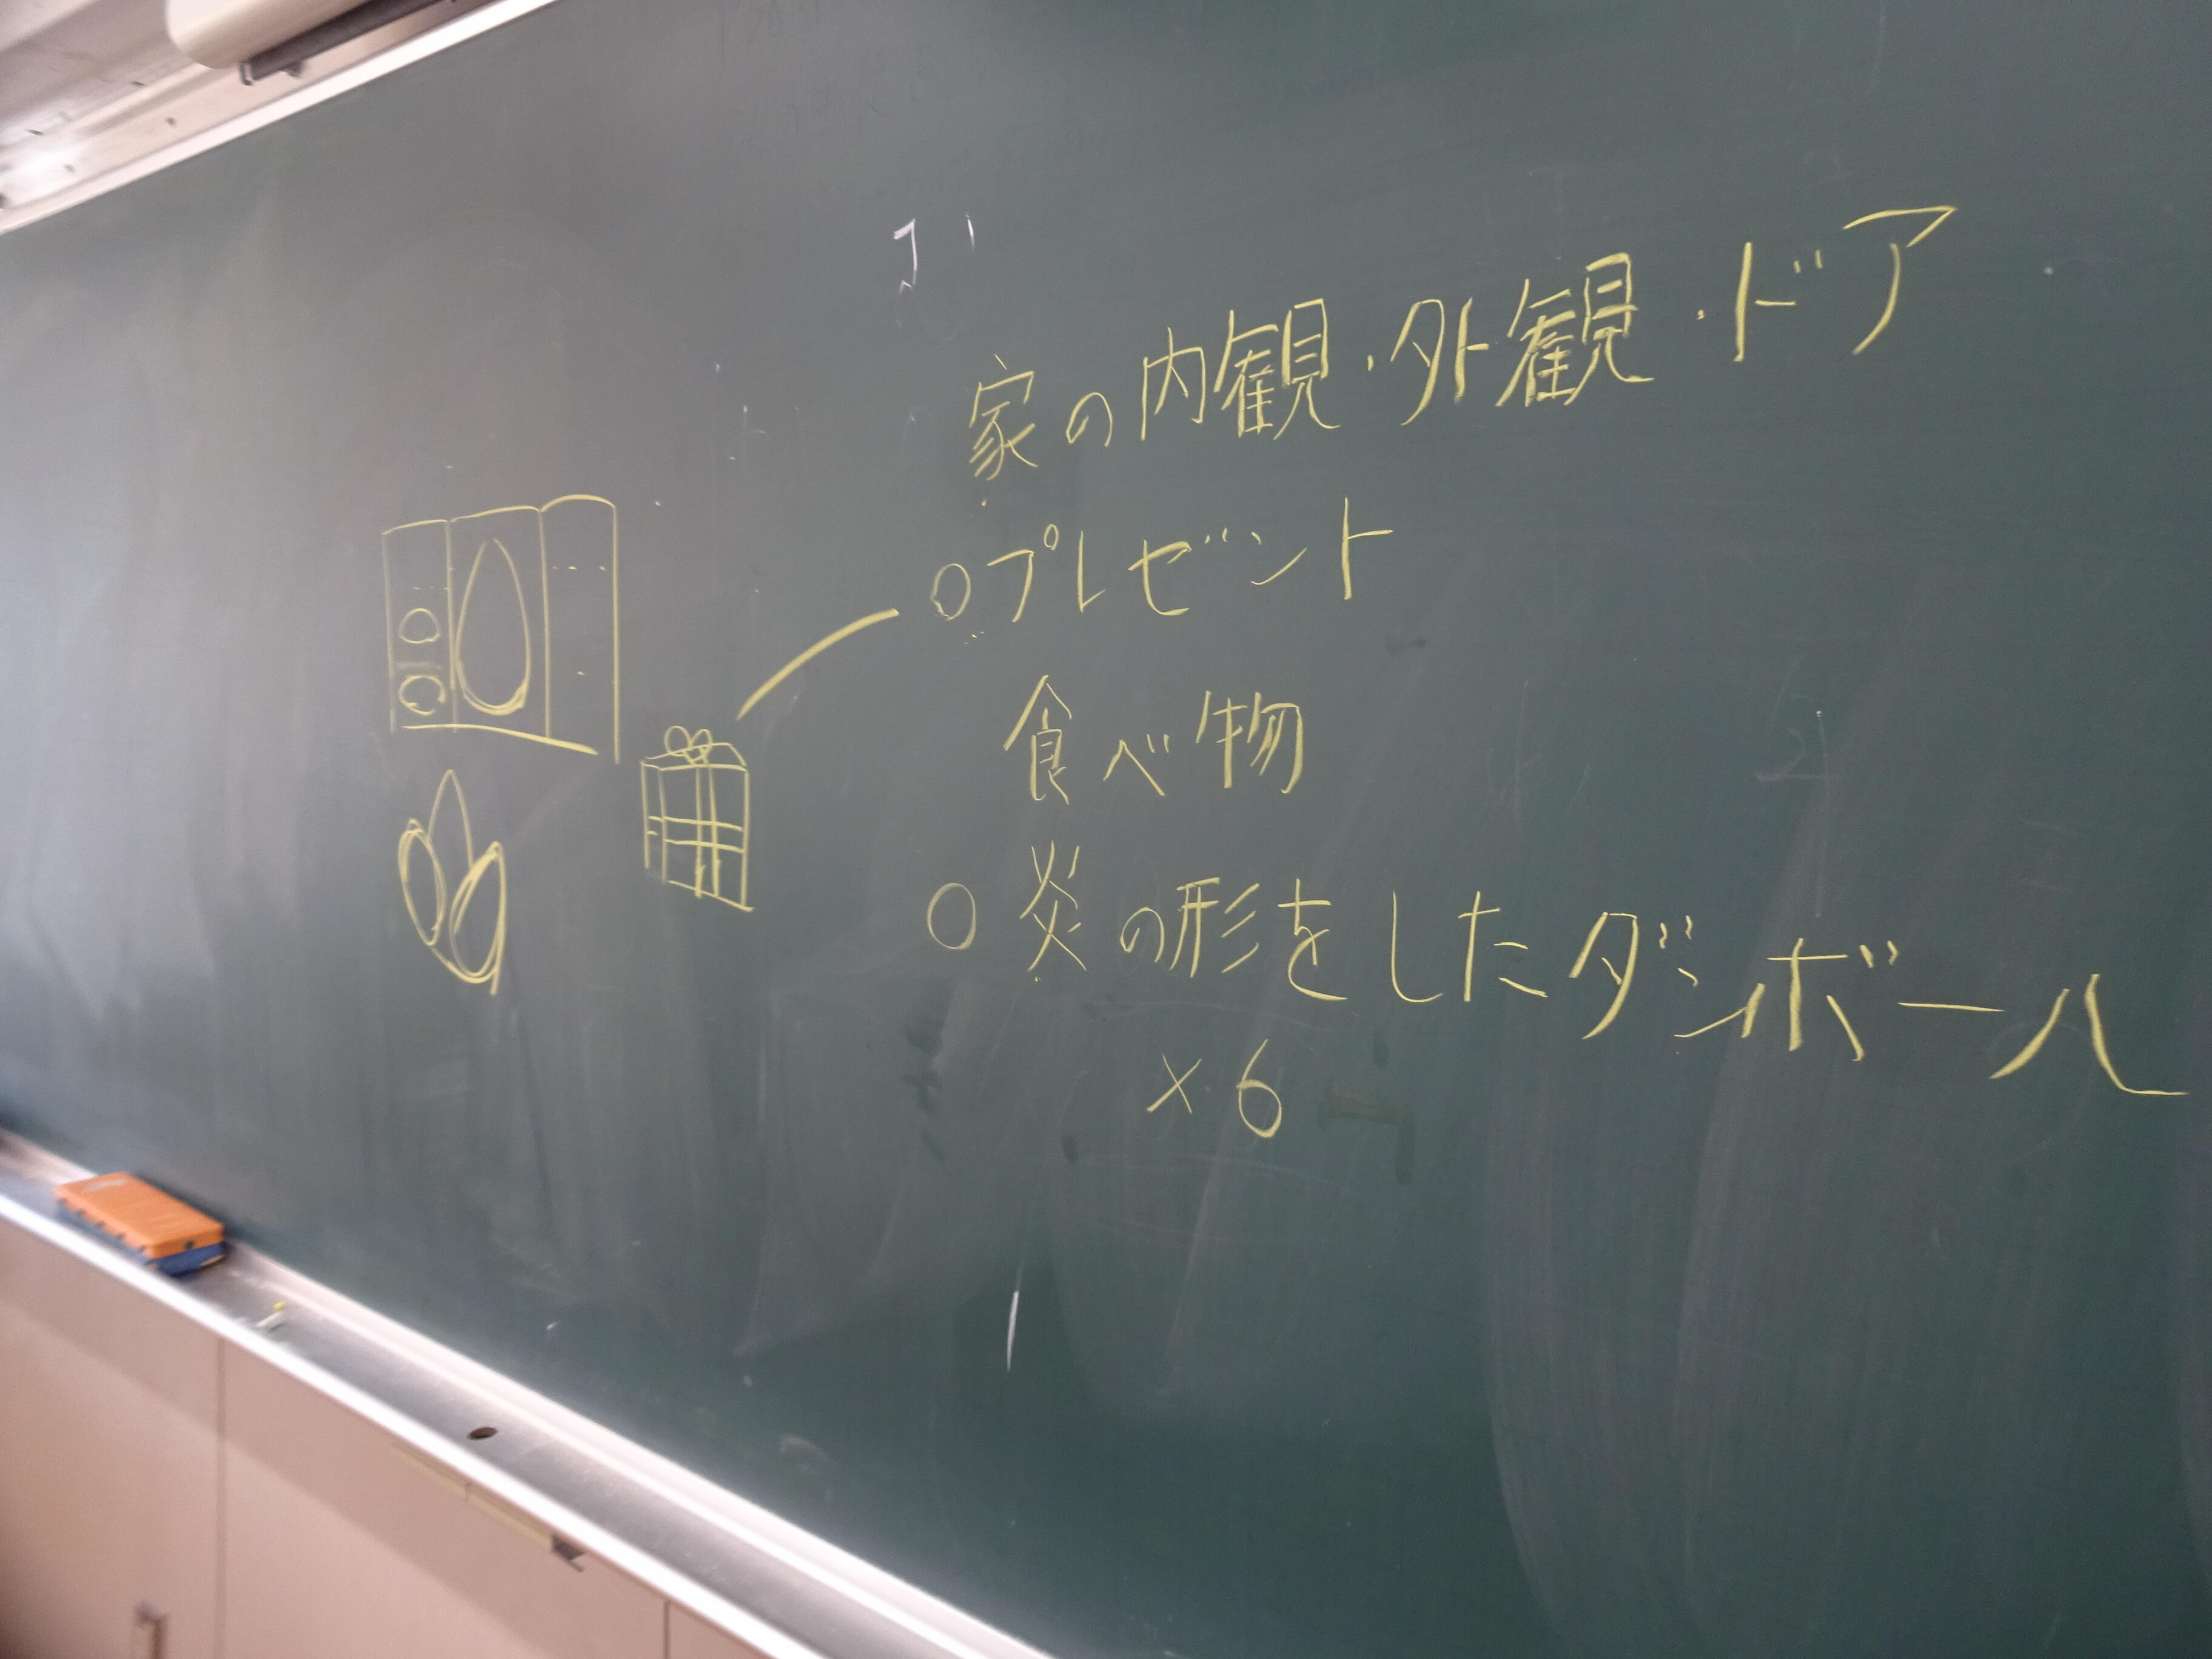 家の内観・外観・ドア
○プレゼント
食べ物
○炎の形をしたダンボール
×6